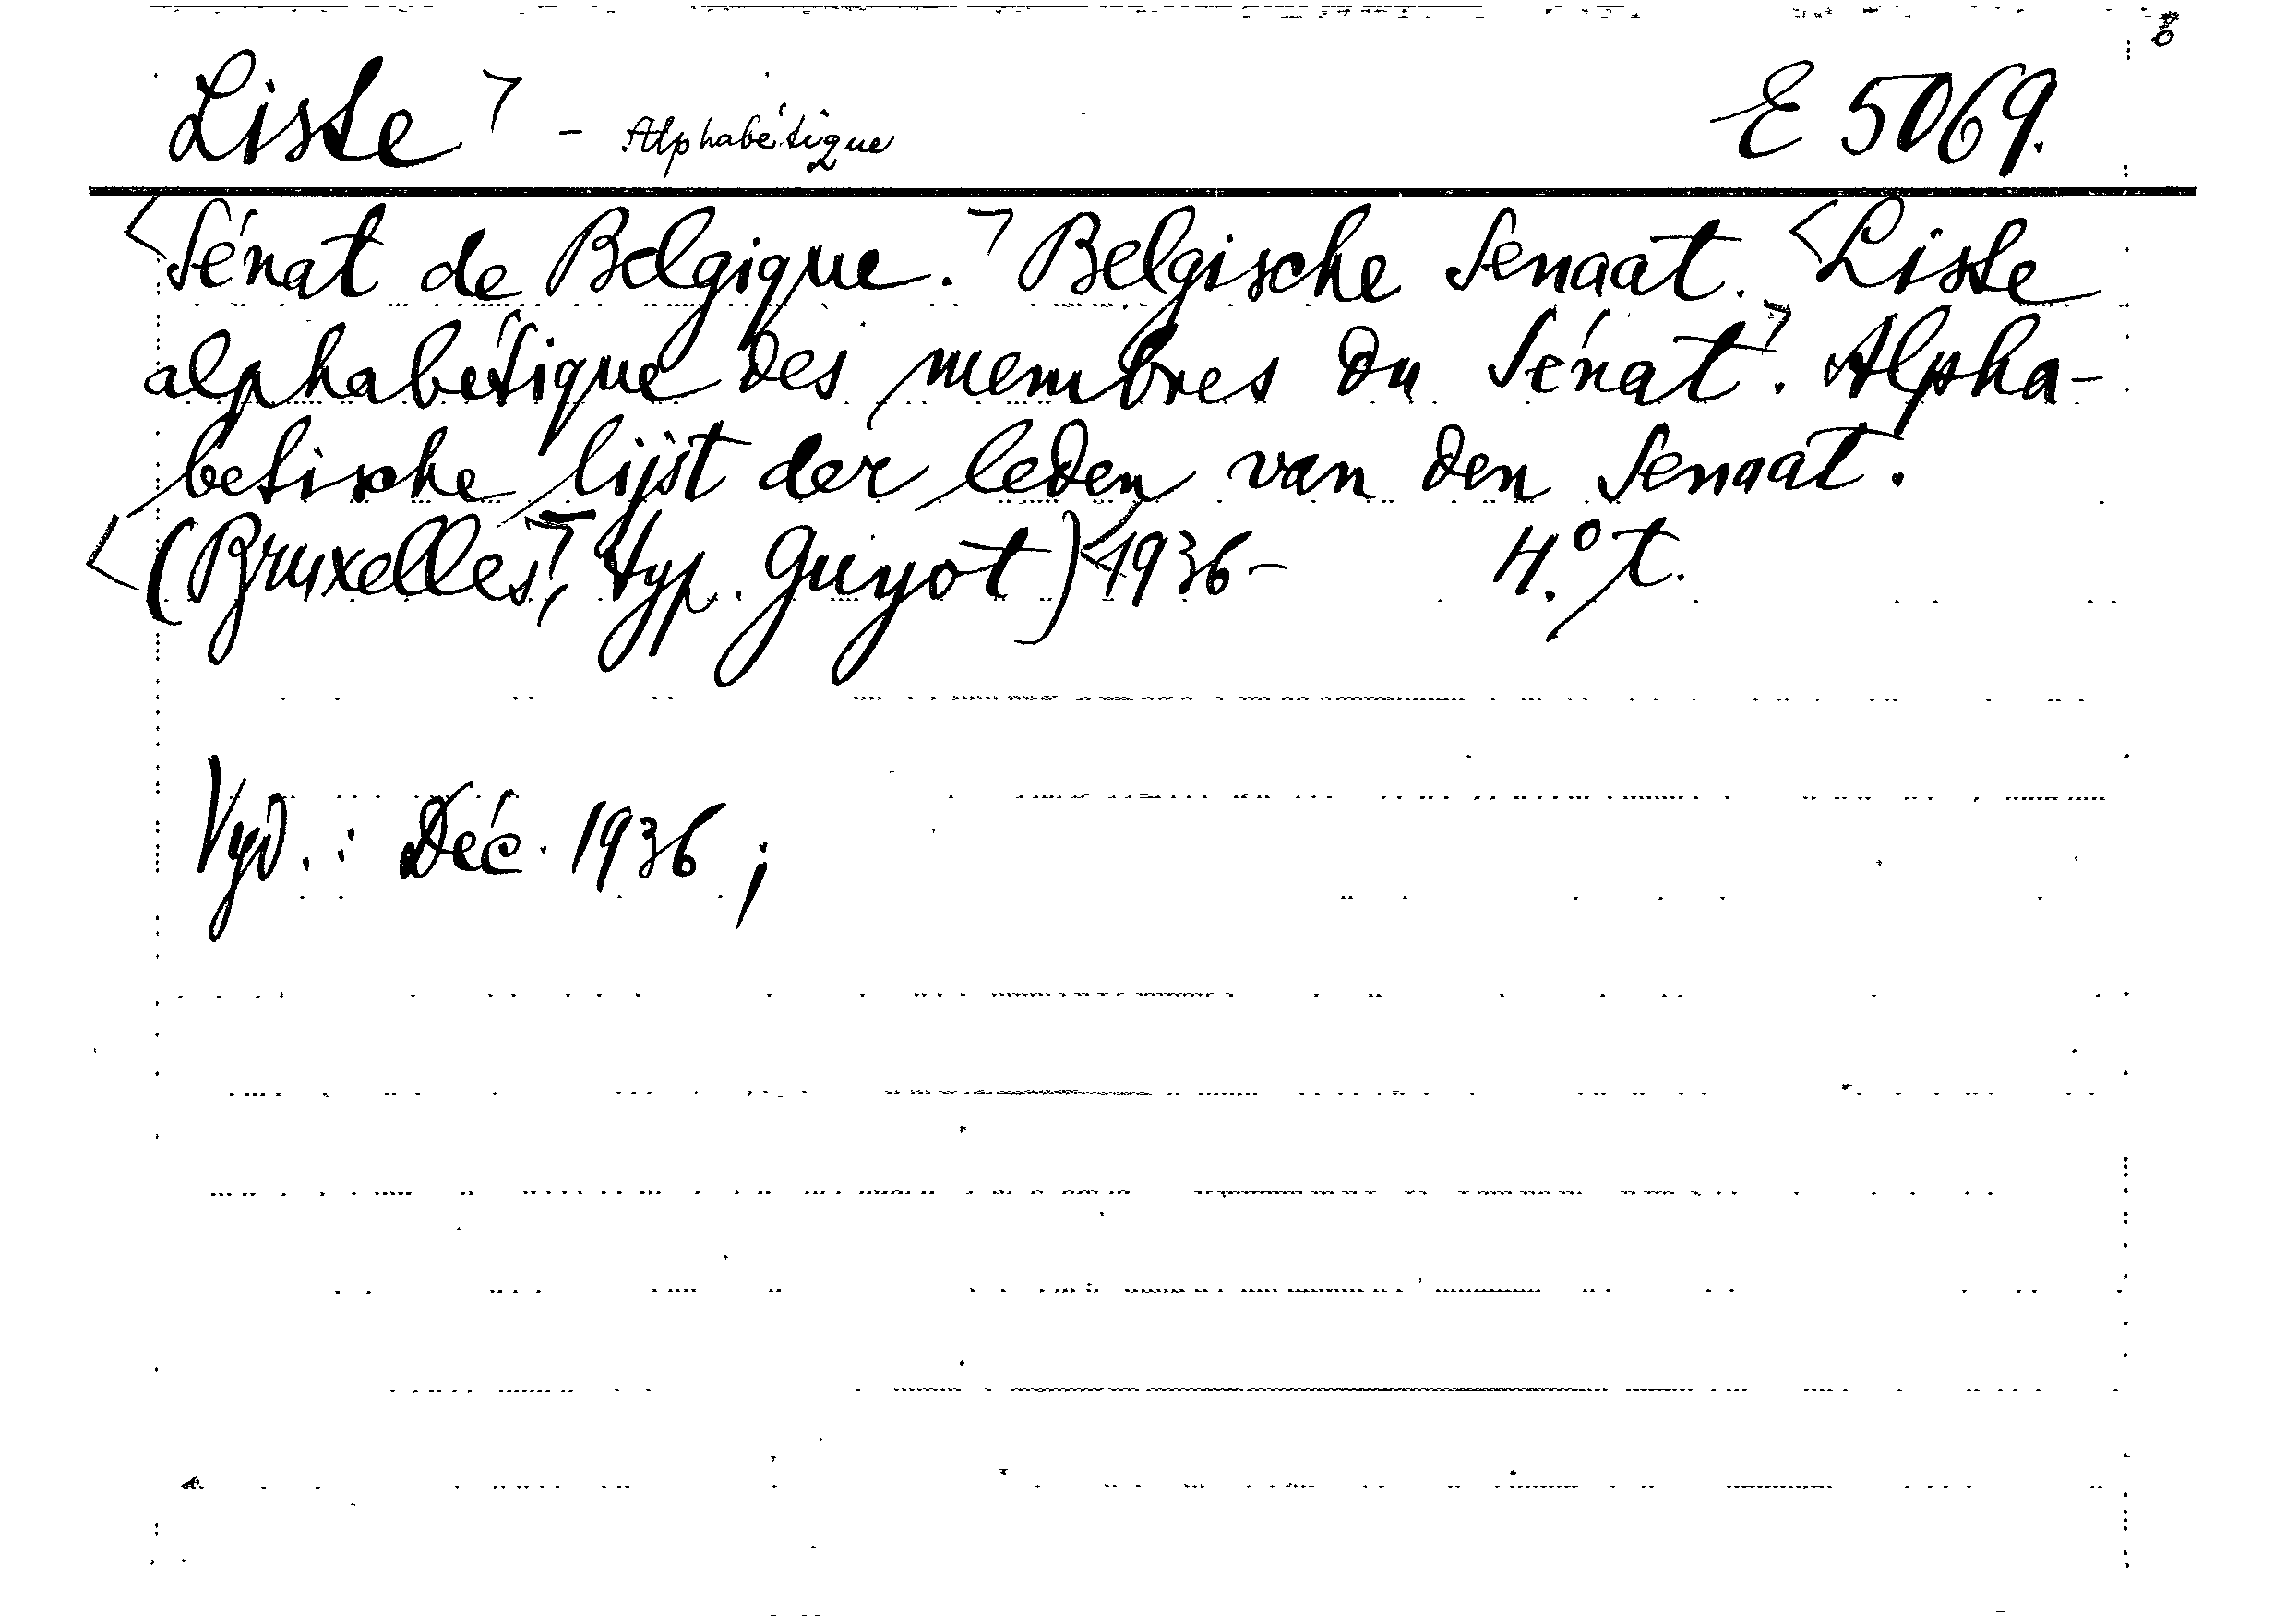 Liste ⌝ - Alphabétique E 5069.
<Sénat de Belgique.⌝ Belgische Senaat. <Liste
alphabétique des membres du Sénat⌝. Alpha-
betische lijst der leden van den Senaat.
<(Bruxelles,⌝ typ. Guyot) <1936- 4.° t.
Vyd. : Déc. 1936 ;